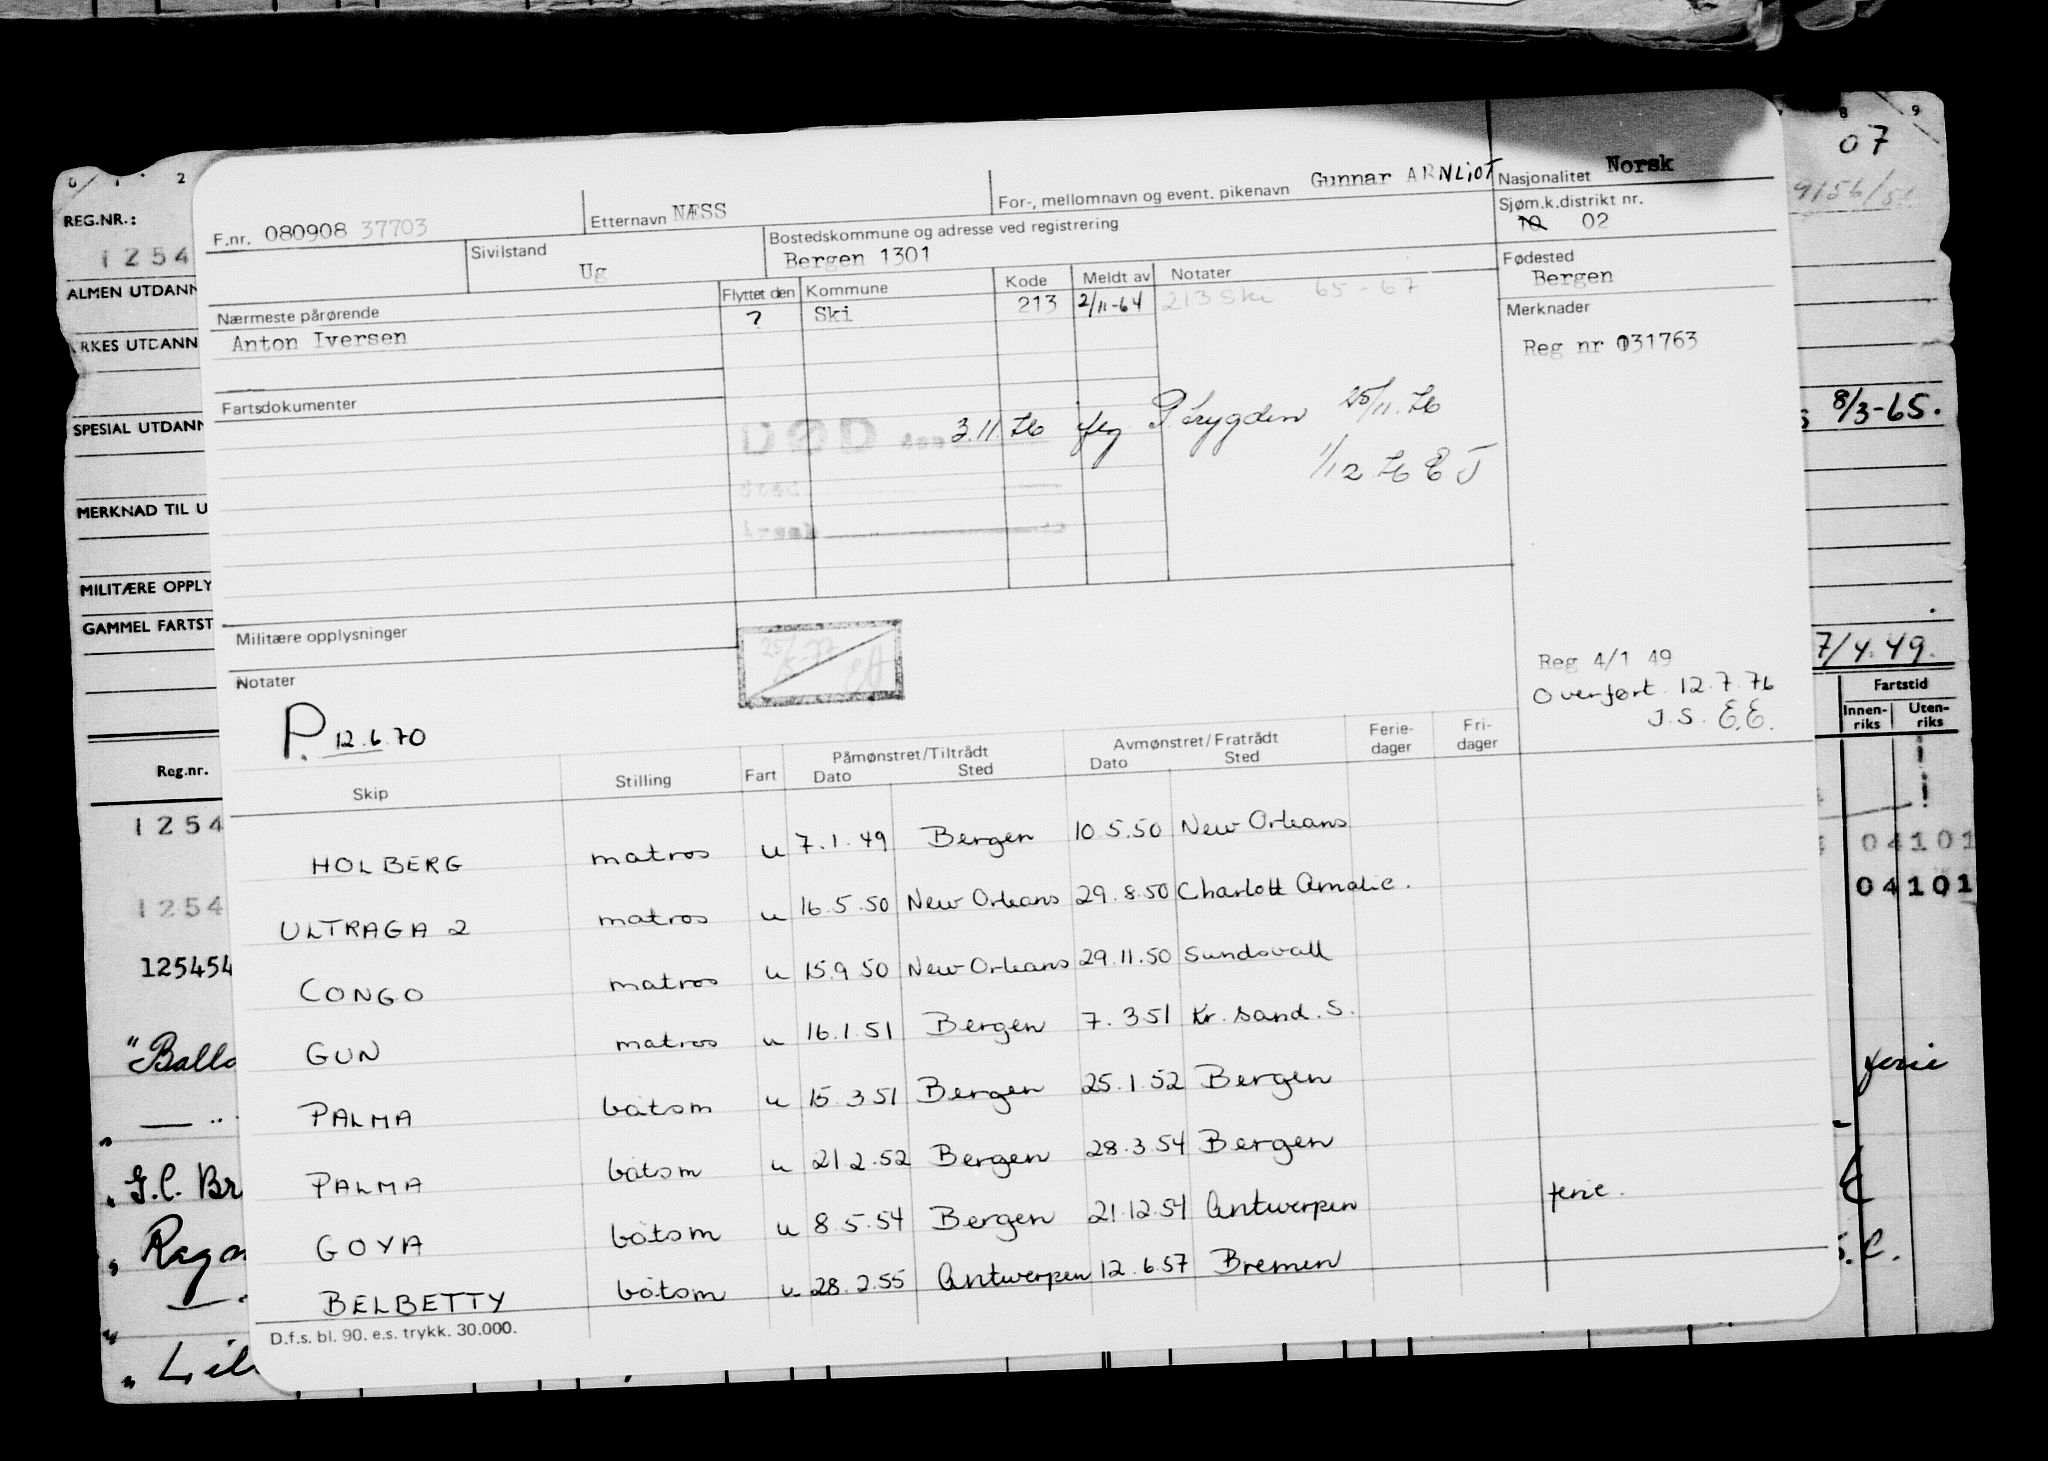 8 9
07
0 1 2
9156/5
REG.NR.:
1254
ALMEN UTDANN
RKES UTDANN
SPESIAL UTDANN
8/3-65.
MERKNAD TIL U
MILITÆRE OPPLY
GAMMEL FARTST
7/4.49.
Fartstid
Innen-riks Uten-riks
Reg.nr.
1254
04101
1254
04101
125454
"Balla
ferie
G.C. Br
Ragn
Lil
F.nr. 080908 37703
Etternavn NÆSS
For-, mellomnavn og event. pikenavn Gunnar ARNLIOT
Nasjonalitet Norsk
Sivilstand Ug
Bostedskommune og adresse ved registrering
Bergen 1301
Sjøm.k.distrikt nr.
10 02
Fødested
Bergen
Nærmeste pårørende
Anton Iversen
Flyttet den Kommune Kode Meldt av Notater
? Ski 213 2/11-64 213 Ski 65-67
Merknader
Reg nr 031763
Fartsdokumenter
DØD 3.11.76 flg P Trygden 25/11.76
1/12 76 E J
Militære opplysninger
Notater
P. 12.6.70
25/5-77
Reg 4/1 49
Overført 12.7.76
J.S. E.E.
Skip Stilling Fart Påmønstret/Tiltrådt Dato Sted Avmønstret/Fratrådt Dato Sted Ferie-dager Fri-dager
HOLBERG matros u 7.1.49 Bergen 10.5.50 New Orleans
ULTRAGA 2 matros u 16.5.50 New Orleans 29.8.50 Charlott Amalie.
CONGO matros u 15.9 50 New Orleans 29.11.50 Sundsvall
GUN matros u 16.1.51 Bergen 7.3 51 Kr. sand. S.
PALMA båtsm u 15.3 51 Bergen 25.1.52 Bergen
PALMA båtsm u 21 2.52 Bergen 28.3.54 Bergen
GOYA båtsm u 8.5.54 Bergen 21.12.54 Antwerpen ferie.
BELBETTY båtsm u 28.2.55 Antwerpen 12.6.57 Bremen
D.f.s. bl. 90. e.s. trykk. 30.000.